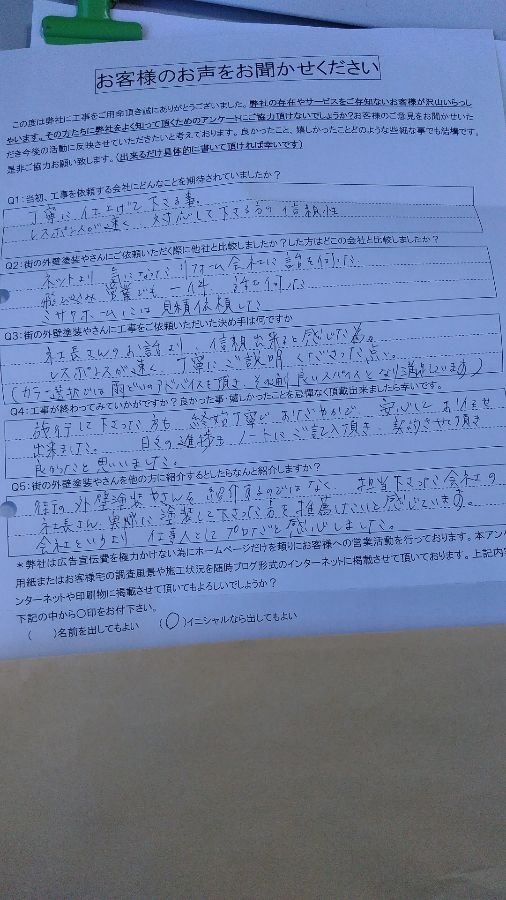 お客様のお声をお聞かせください
この度は弊社に工事をご用命頂き誠にありがとうございました。弊社の存在やサービスをご存知ないお客様が沢山いらっし
ゃいます。その方たちに弊社をよく知って頂くためのアンケートにご協力頂けないでしょうか?お客様のご意見をお聞かせいた
だき今後の活動に反映させていただきたいと考えております。良かったこと、嬉しかったことどのような些細な事でも結構です。
是非ご協力お願い致します。(出来るだけ具体的に書いて頂ければ幸いです)
Q1:当初、工事を依頼する会社にどんなことを期待されていましたか?
丁寧に仕上げて下さる事。
レスポンスが速く、対応して下さる方の信頼性
Q2:街の外壁塗装やさんにご依頼いただく際に他社と比較しましたか?した方はどこの会社と比較しましたか?
ネットより気になったリフォーム会社に話を伺った
飛び込み営業でも一件 話を伺った
ミサワホームには見積依頼した
Q3:街の外壁塗装やさんに工事をご依頼いただいた決め手は何ですか
社長さんのお話より、信頼出来ると感じた為。
レスポンスが速く、丁寧にご説明くださった点。
(カラー選択では雨どいのアドバイスを頂き、その通り良いスパイスとなり満足しています)
Q4:工事が終わってみていかがですか?良かった事・嬉しかったことを忌憚なく頂戴出来ましたら幸いです。
施行して下さった方も 終始丁寧でおだやかで 安心してお任せ
出来ました。 日々の進捗もノートにご記入頂き、契約させて頂き
良かったと思いました。
Q5:街の外壁塗装やさんを他の方に紹介するとしたらなんと紹介しますか?
街の外壁塗装やさんを紹介するのではなく、担当下さった会社の
社長さん、実際に塗装して下さった方を推薦したいと感じています。
会社というより 仕事人としてプロだと感心しました。
*弊社は広告宣伝費を極力かけない為にホームページだけを頼りにお客様への営業活動を行っております。本アン
用紙またはお客様宅の調査風景や施工状況を随時ブログ形式のインターネットに掲載させて頂いております。上記内容
ンターネットや印刷物に掲載させて頂いてもよろしいでしょうか?
下記の中から〇印をお付下さい。
( )名前を出してもよい (〇)イニシャルなら出してもよい